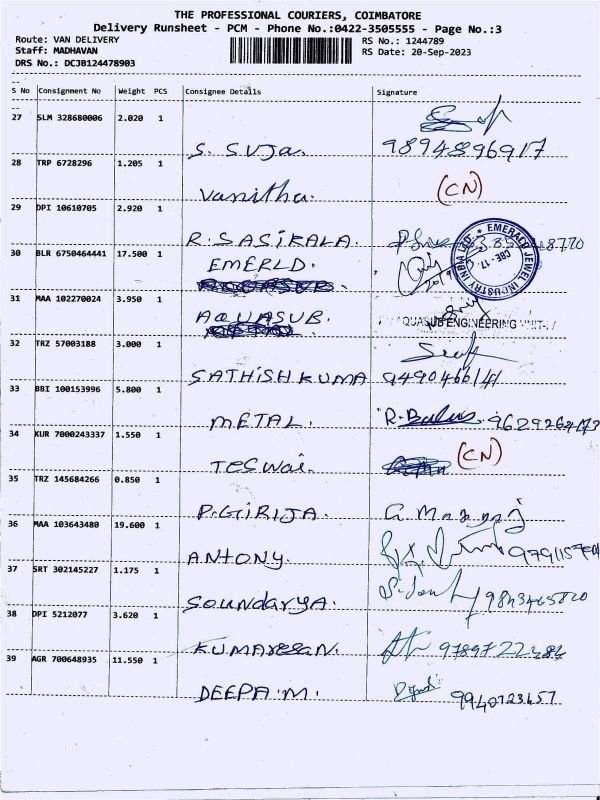 THE PROFESSIONAL COURIERS, COIMBATORE
Delivery Runsheet - PCM - Phone No.:0422-3505555 - Page No.:3
Route: VAN DELIVERY RS No.: 1244789
Staff: MADHAVAN RS Date: 20-Sep-2023
DRS No.: DCJB124478903
S No Consignment No Weight PCS Consignee Details Signature
27 SLM 328680006 2.020 1
S. SUJA. 9894896917
28 TRP 6728296 1.205 1
Vanitha. (CN)
29 DPI 10610705 2.920 1
R. SASIKALA.
30 BLR 6750464441 17.500 1 EMERLD.
EMERALD JEWEL INDUSTRY INDIA LTD. * CBE - 17.
31 MAA 102270024 3.950 1
AQUASUB. AQUASUB ENGINEERING UNIT-
32 TRZ 57003188 3.000 1
SATHISH KUMA 9490466141
33 BBI 100153996 5.800 1
METAL. R.
34 KUR 7000243337 1.550 1
TESWAI. (CN)
35 TRZ 145684266 0.850 1
P. GIRIJA.
36 MAA 103643480 19.600 1
ANTONY.
37 SRT 302145227 1.175 1
SOUNDARYA.
38 DPI 5212077 3.620 1
KUMARESAN. 9789722484
39 AGR 700648935 11.550 1
DEEPA.M. 9940723457